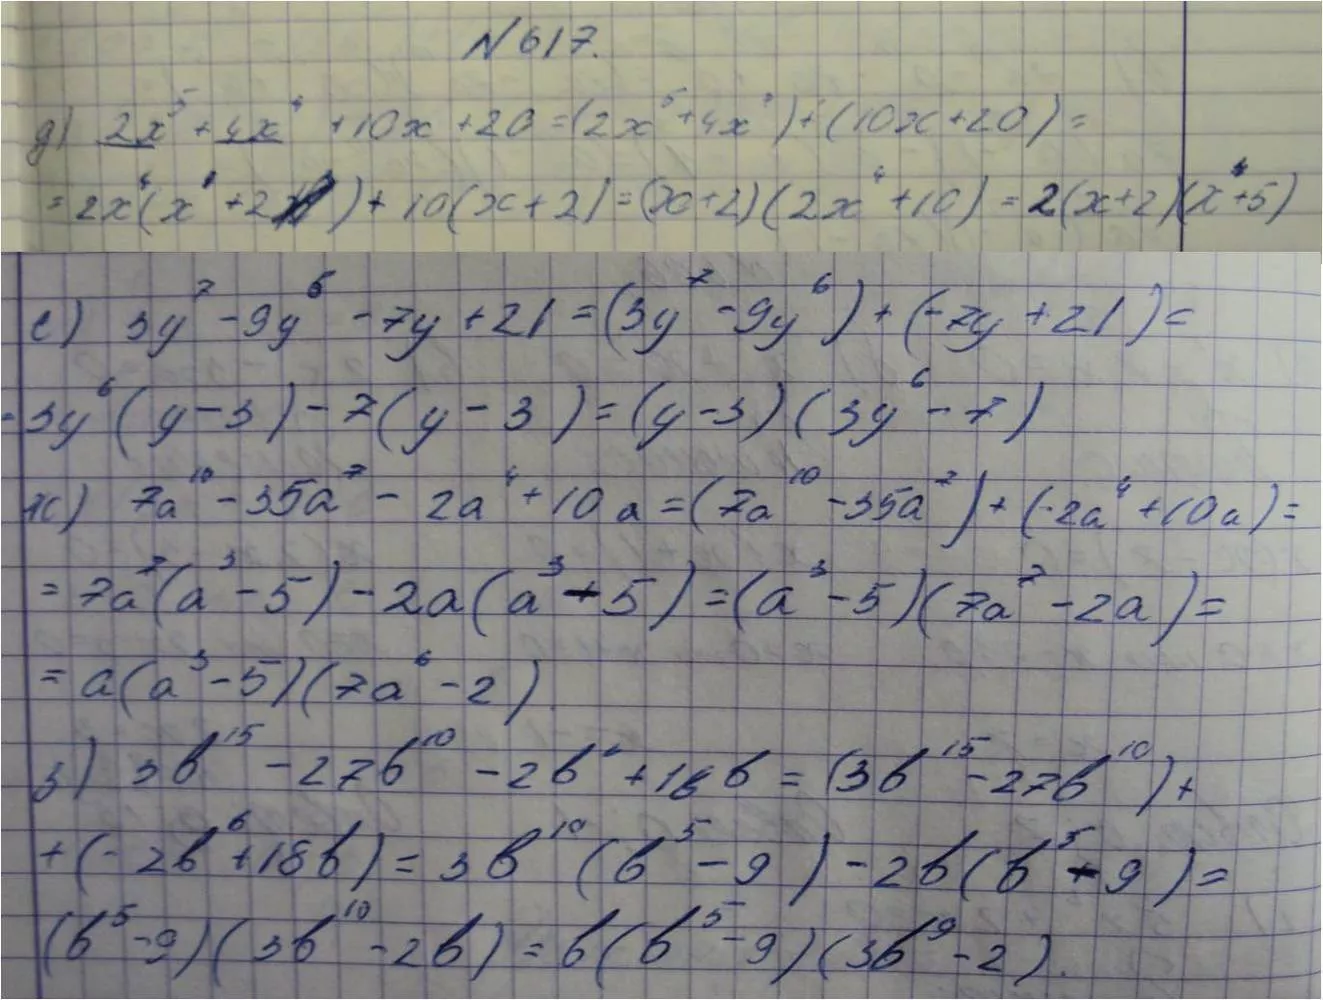 N 617.
д) 2x⁵ + 4x⁴ + 10x + 20 = (2x⁵ + 4x⁴) + (10x + 20) =
= 2x⁴(x + 2) + 10(x + 2) = (x + 2)(2x⁴ + 10) = 2(x + 2)(x⁴ + 5)
е) 3y⁷ - 9y⁶ - 7y + 21 = (3y⁷ - 9y⁶) + (-7y + 21) =
= 3y⁶(y - 3) - 7(y - 3) = (y - 3)(3y⁶ - 7)
ж) 7a¹⁰ - 35a⁷ - 2a⁴ + 10a = (7a¹⁰ - 35a⁷) + (-2a⁴ + 10a) =
= 7a⁷(a³ - 5) - 2a(a³ - 5) = (a³ - 5)(7a⁷ - 2a) =
= a(a³ - 5)(7a⁶ - 2)
з) 3b¹⁵ - 27b¹⁰ - 2b⁶ + 18b = (3b¹⁵ - 27b¹⁰) +
+ (-2b⁶ + 18b) = 3b¹⁰(b⁵ - 9) - 2b(b⁵ - 9) =
(b⁵ - 9)(3b¹⁰ - 2b) = b(b⁵ - 9)(3b⁹ - 2).